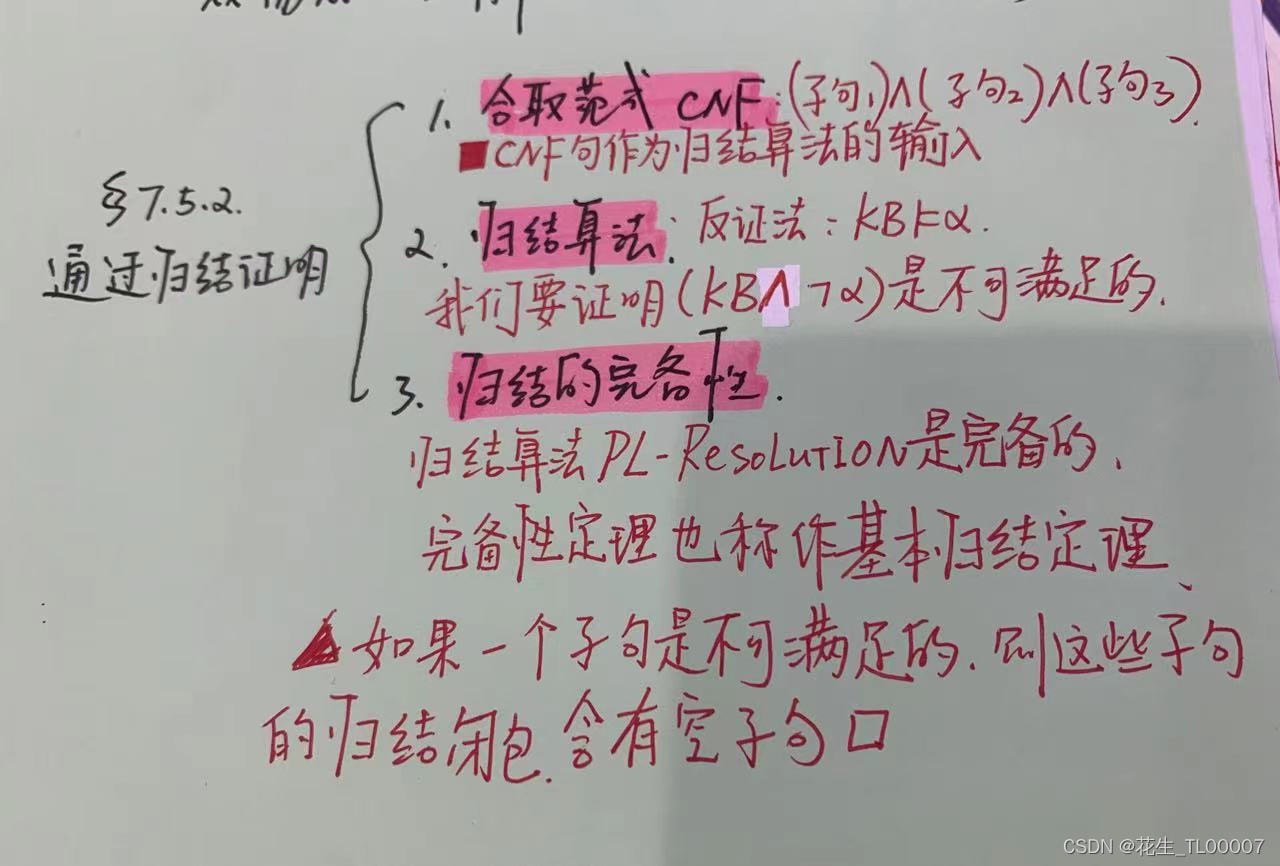 1. 合取范式 CNF:(子句1)∧(子句2)∧(子句3).
■CNF句作为归结算法的输入
§7.5.2.
通过归结证明
2. 归结算法: 反证法:KB⊨α.
我们要证明(KB∧¬α)是不可满足的.
3. 归结的完备性.
归结算法PL-ResoLUTION是完备的.
完备性定理也称作基本归结定理、
▲如果一个子句是不可满足的.则这些子句
的归结闭包.含有空子句口
CSDN @花生_TL00007